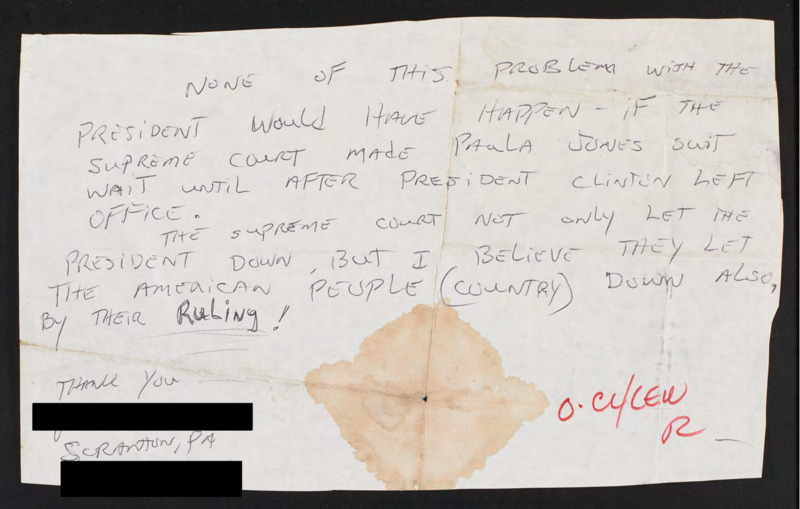 NONE OF THIS PROBLEM WITH THE
PRESIDENT WOULD HAVE HAPPEN - IF THE
SUPREME COURT MADE PAULA JONES SUIT
WAIT UNTIL AFTER PRESIDENT CLINTON LEFT
OFFICE.
THE SUPREME COURT NOT ONLY LET THE
PRESIDENT DOWN, BUT I BELIEVE THEY LET
THE AMERICAN PEOPLE (COUNTRY) DOWN ALSO,
BY THEIR RULING!
THANK YOU
SCRANTON, PA
R